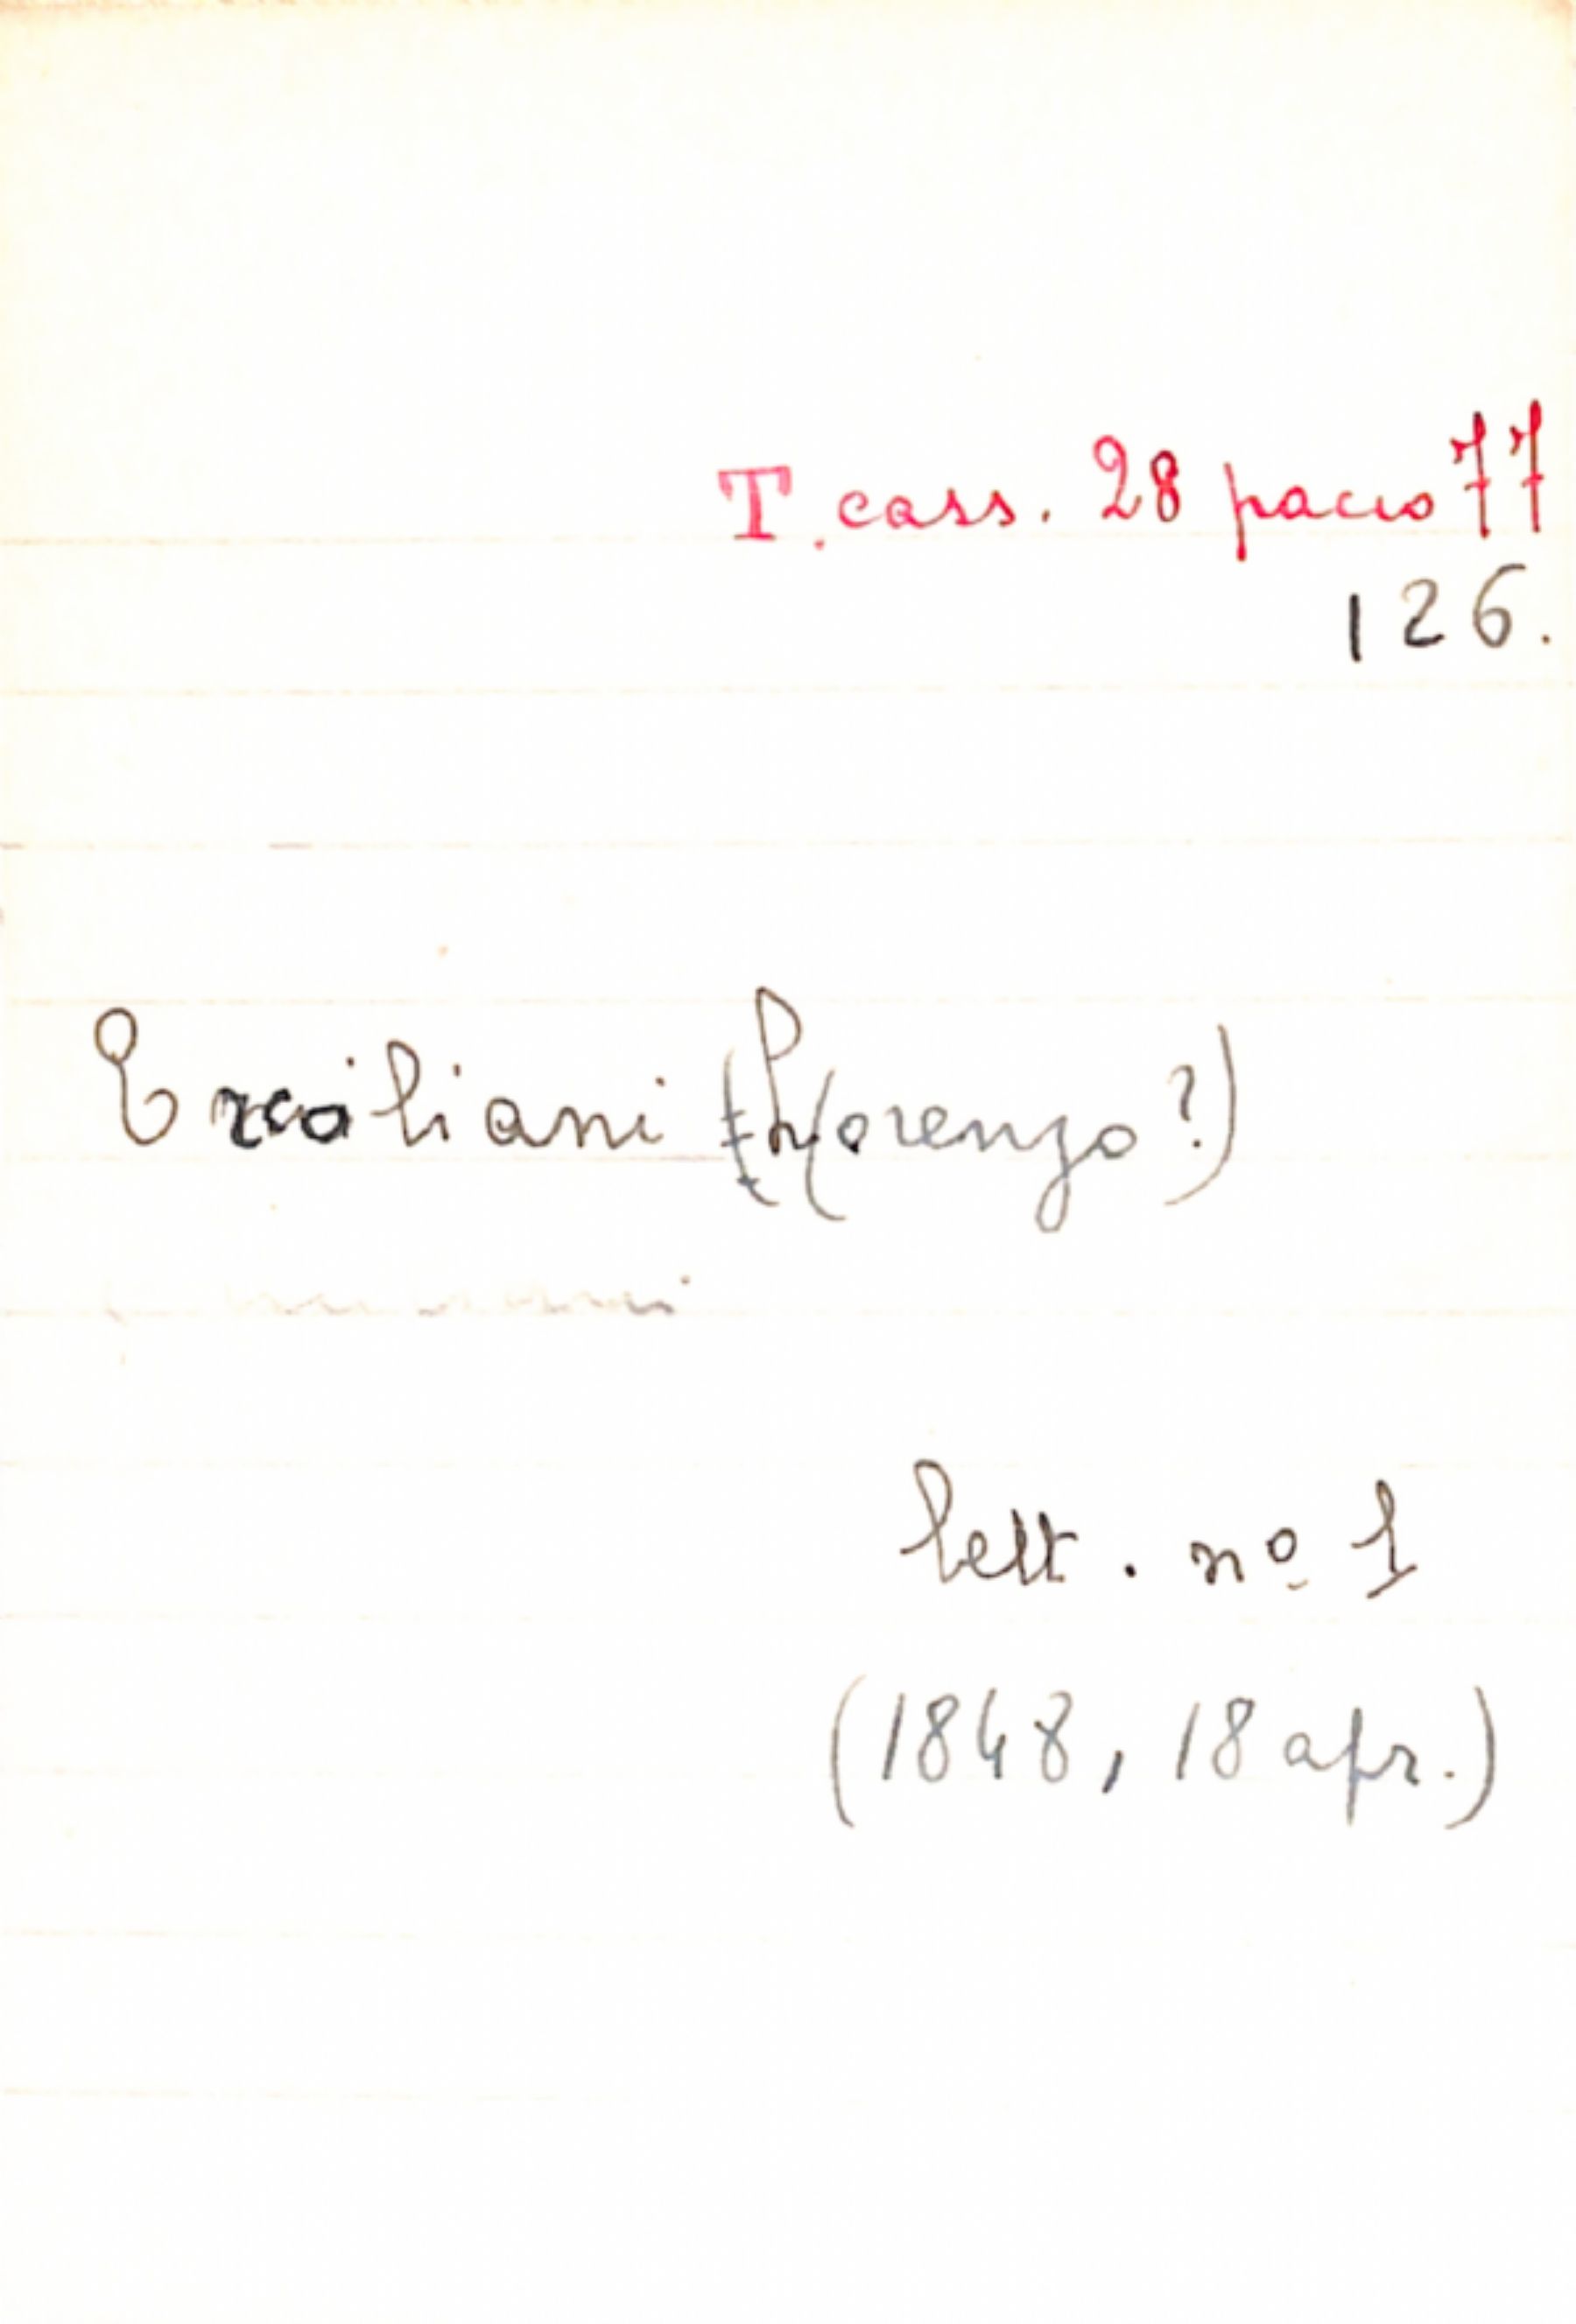 T. cass. 28 pacco 77
126.
Ercoliani (Lorenzo?)
lett. nº 1
(1848, 18 apr.)